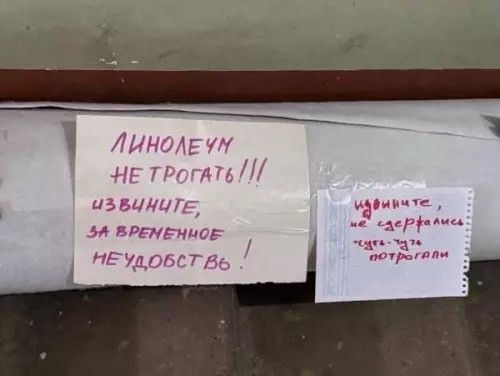 ЛИНОЛЕУМ
НЕ ТРОГАТЬ!!!
ИЗВИНИТЕ,
ЗА ВРЕМЕННОЕ
НЕУДОБСТВЬ!
извините,
не сдержались
чуть-чуть
ПОТРОГАЛИ